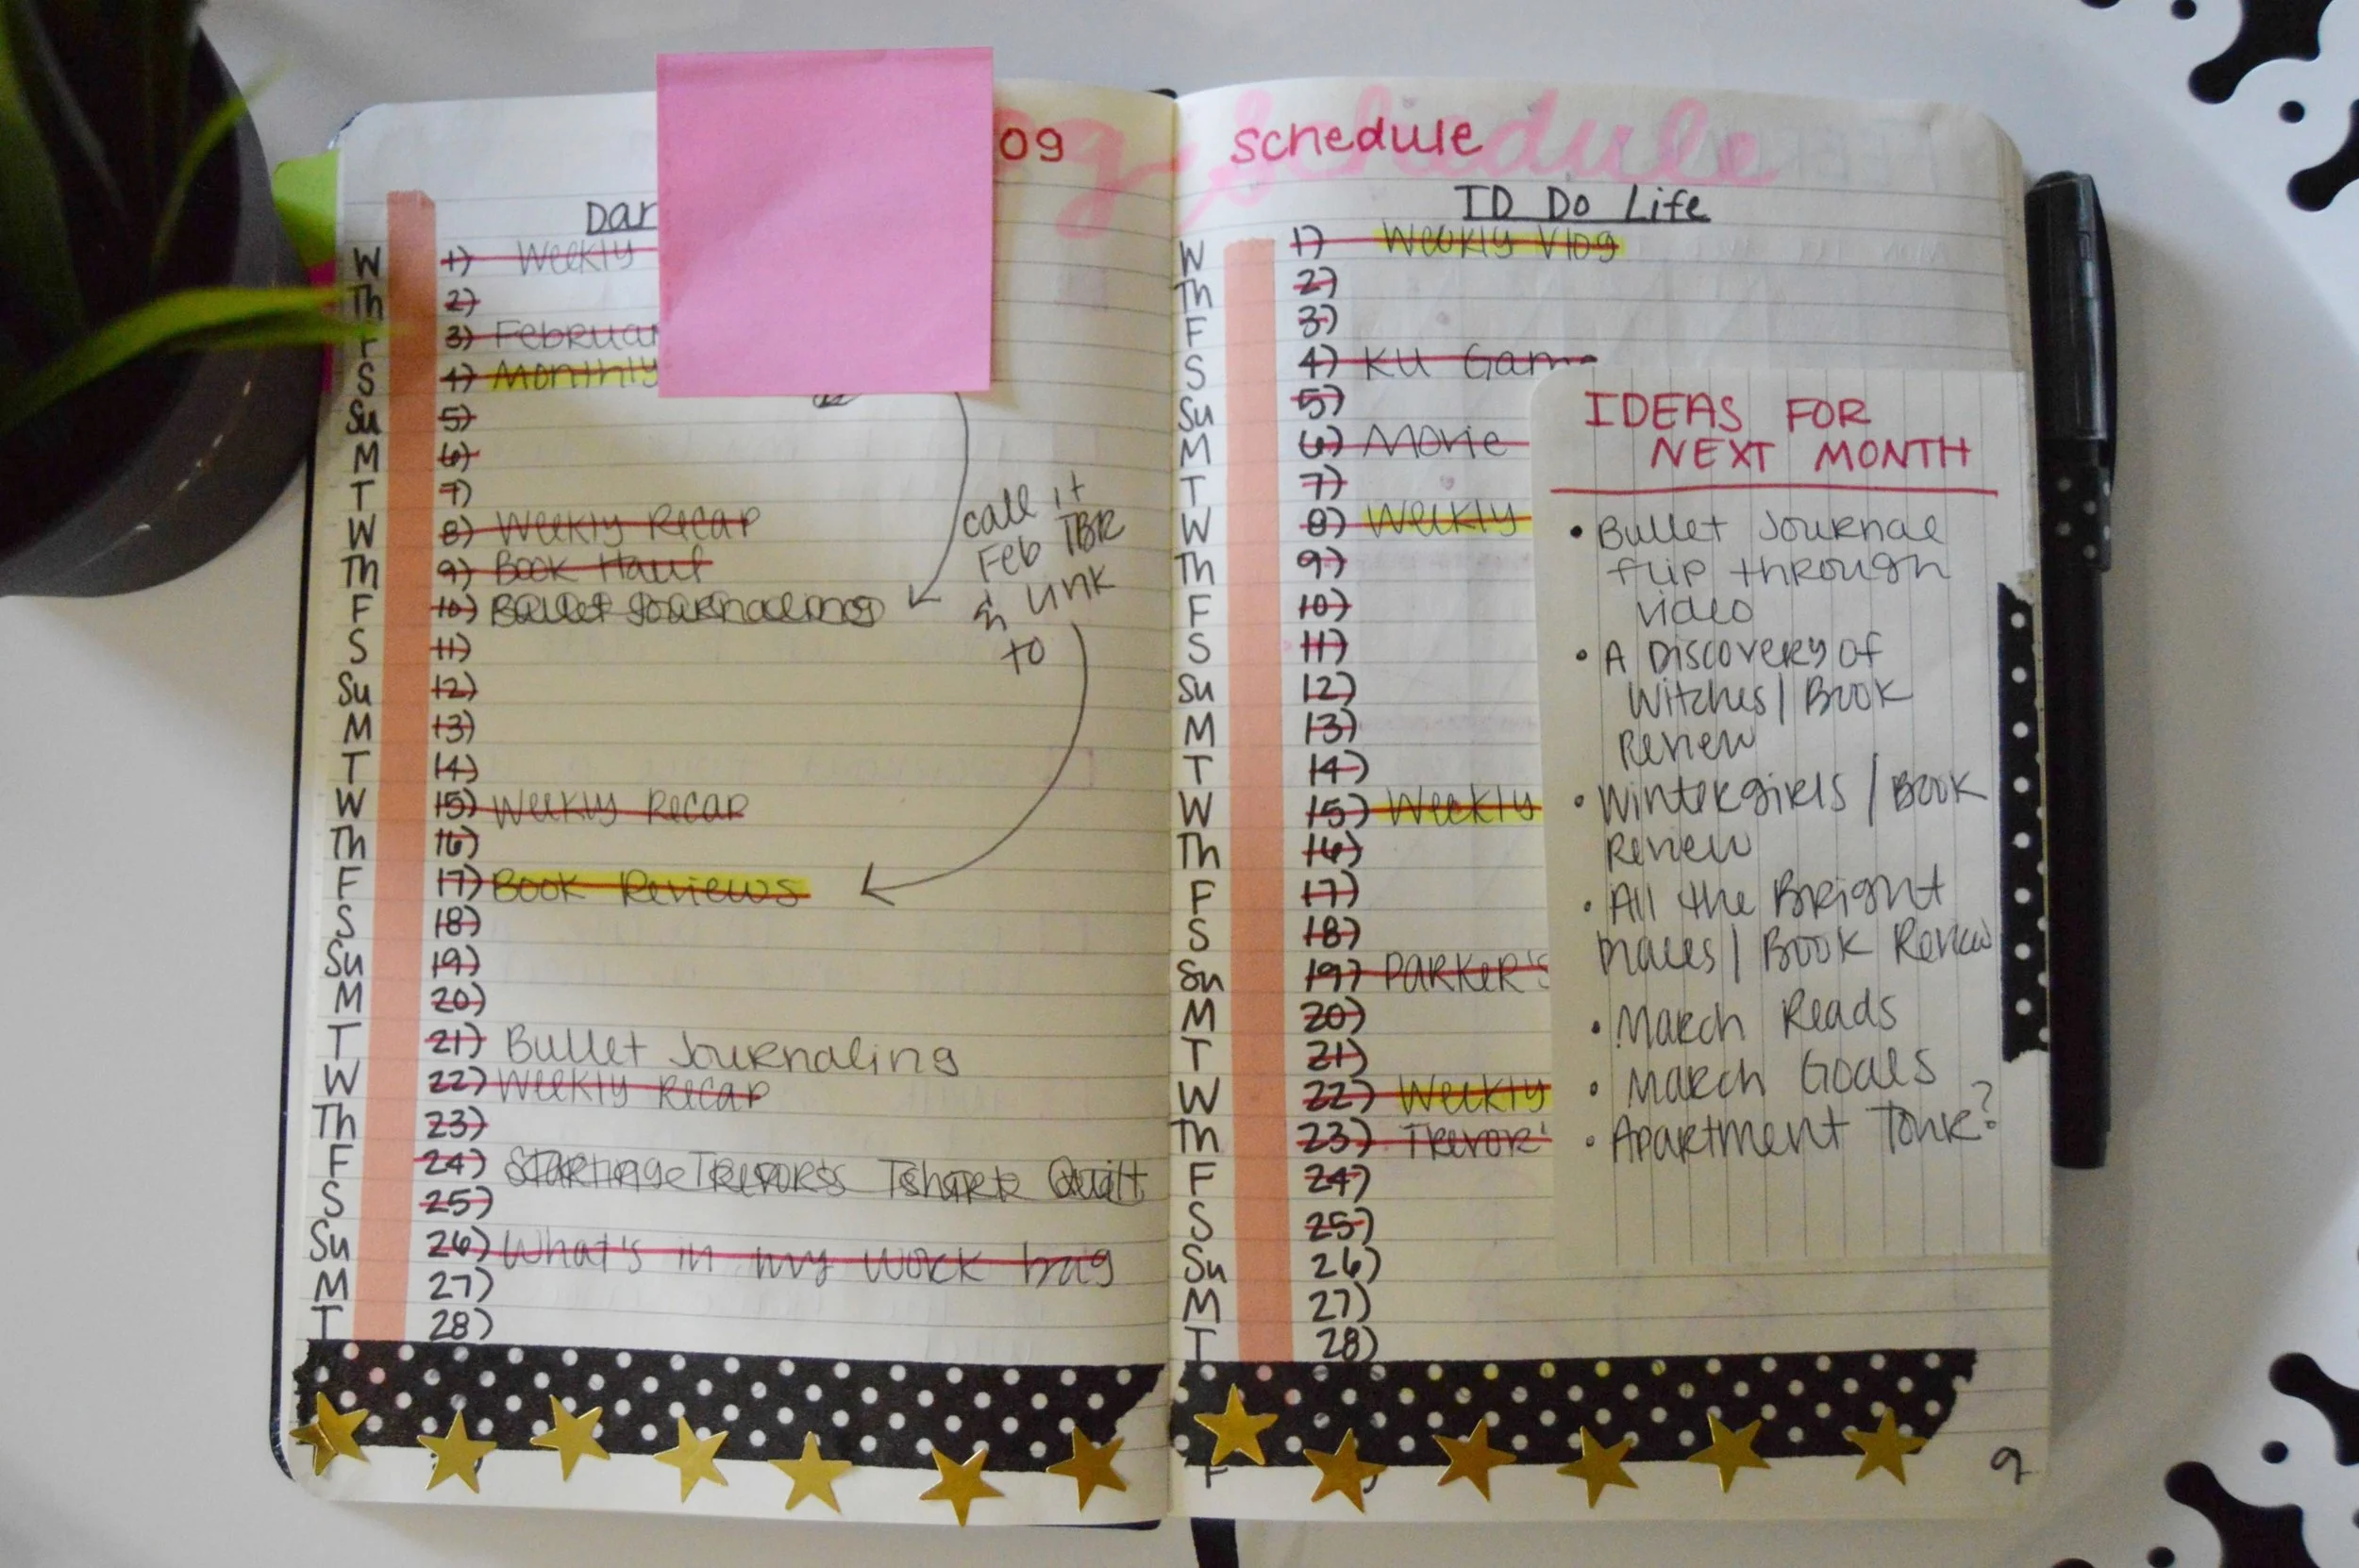 og Schedule
09
Dar
W 1) Weekly
Th 2)
F 3) Februar
S 4) Monthly
Su 5)
M 6)
T 7)
W 8) Weekly Recap
Th 9) Book Haul
F 10) Bullet Journaling
S 11)
Su 12)
M 13)
T 14)
W 15) Weekly Recap
Th 16)
F 17) Book Reviews
S 18)
Su 19)
M 20)
T 21) Bullet Journaling
W 22) Weekly Recap
Th 23)
F 24) Starting Trevor's Tshirt Quilt
S 25)
Su 26) What's in my work bag
M 27)
T 28)
call it
Feb TBR
& link
to
schedule
ID Do Life
W 1) Weekly Vlog
Th 2)
F 3)
S 4) KU Game
Su 5)
M 6) Movie
T 7)
W 8) Weekly
Th 9)
F 10)
S 11)
Su 12)
M 13)
T 14)
W 15) Weekly
Th 16)
F 17)
S 18)
Su 19) Parker's
M 20)
T 21)
W 22) Weekly
Th 23) Trevor'
F 24)
S 25)
Su 26)
M 27)
T 28)
F
IDEAS FOR
NEXT MONTH
• Bullet Journal
flip through
video
• A Discovery of
Witches | Book
Review
• Wintergirls / Book
Review
• All the Bright
Places | Book Review
• March Reads
• March Goals
• Apartment Tour?
9